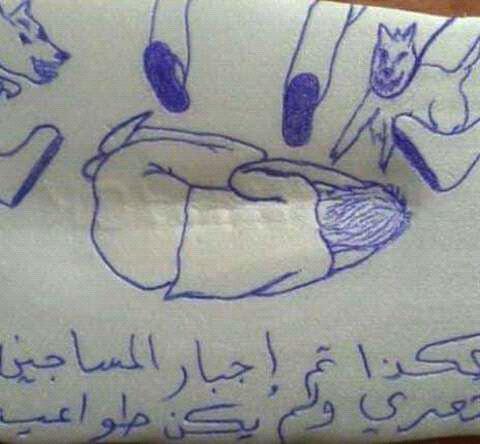 هكذا تم إجبار المساجين
تعري ولم يكن طواعية